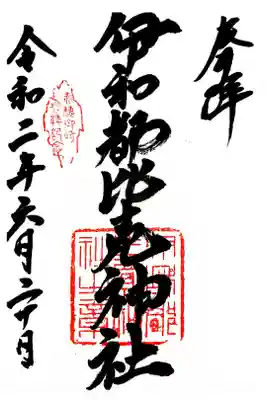 奉拝
伊和都比売神社
赤穂御崎
令和二年六月二十日